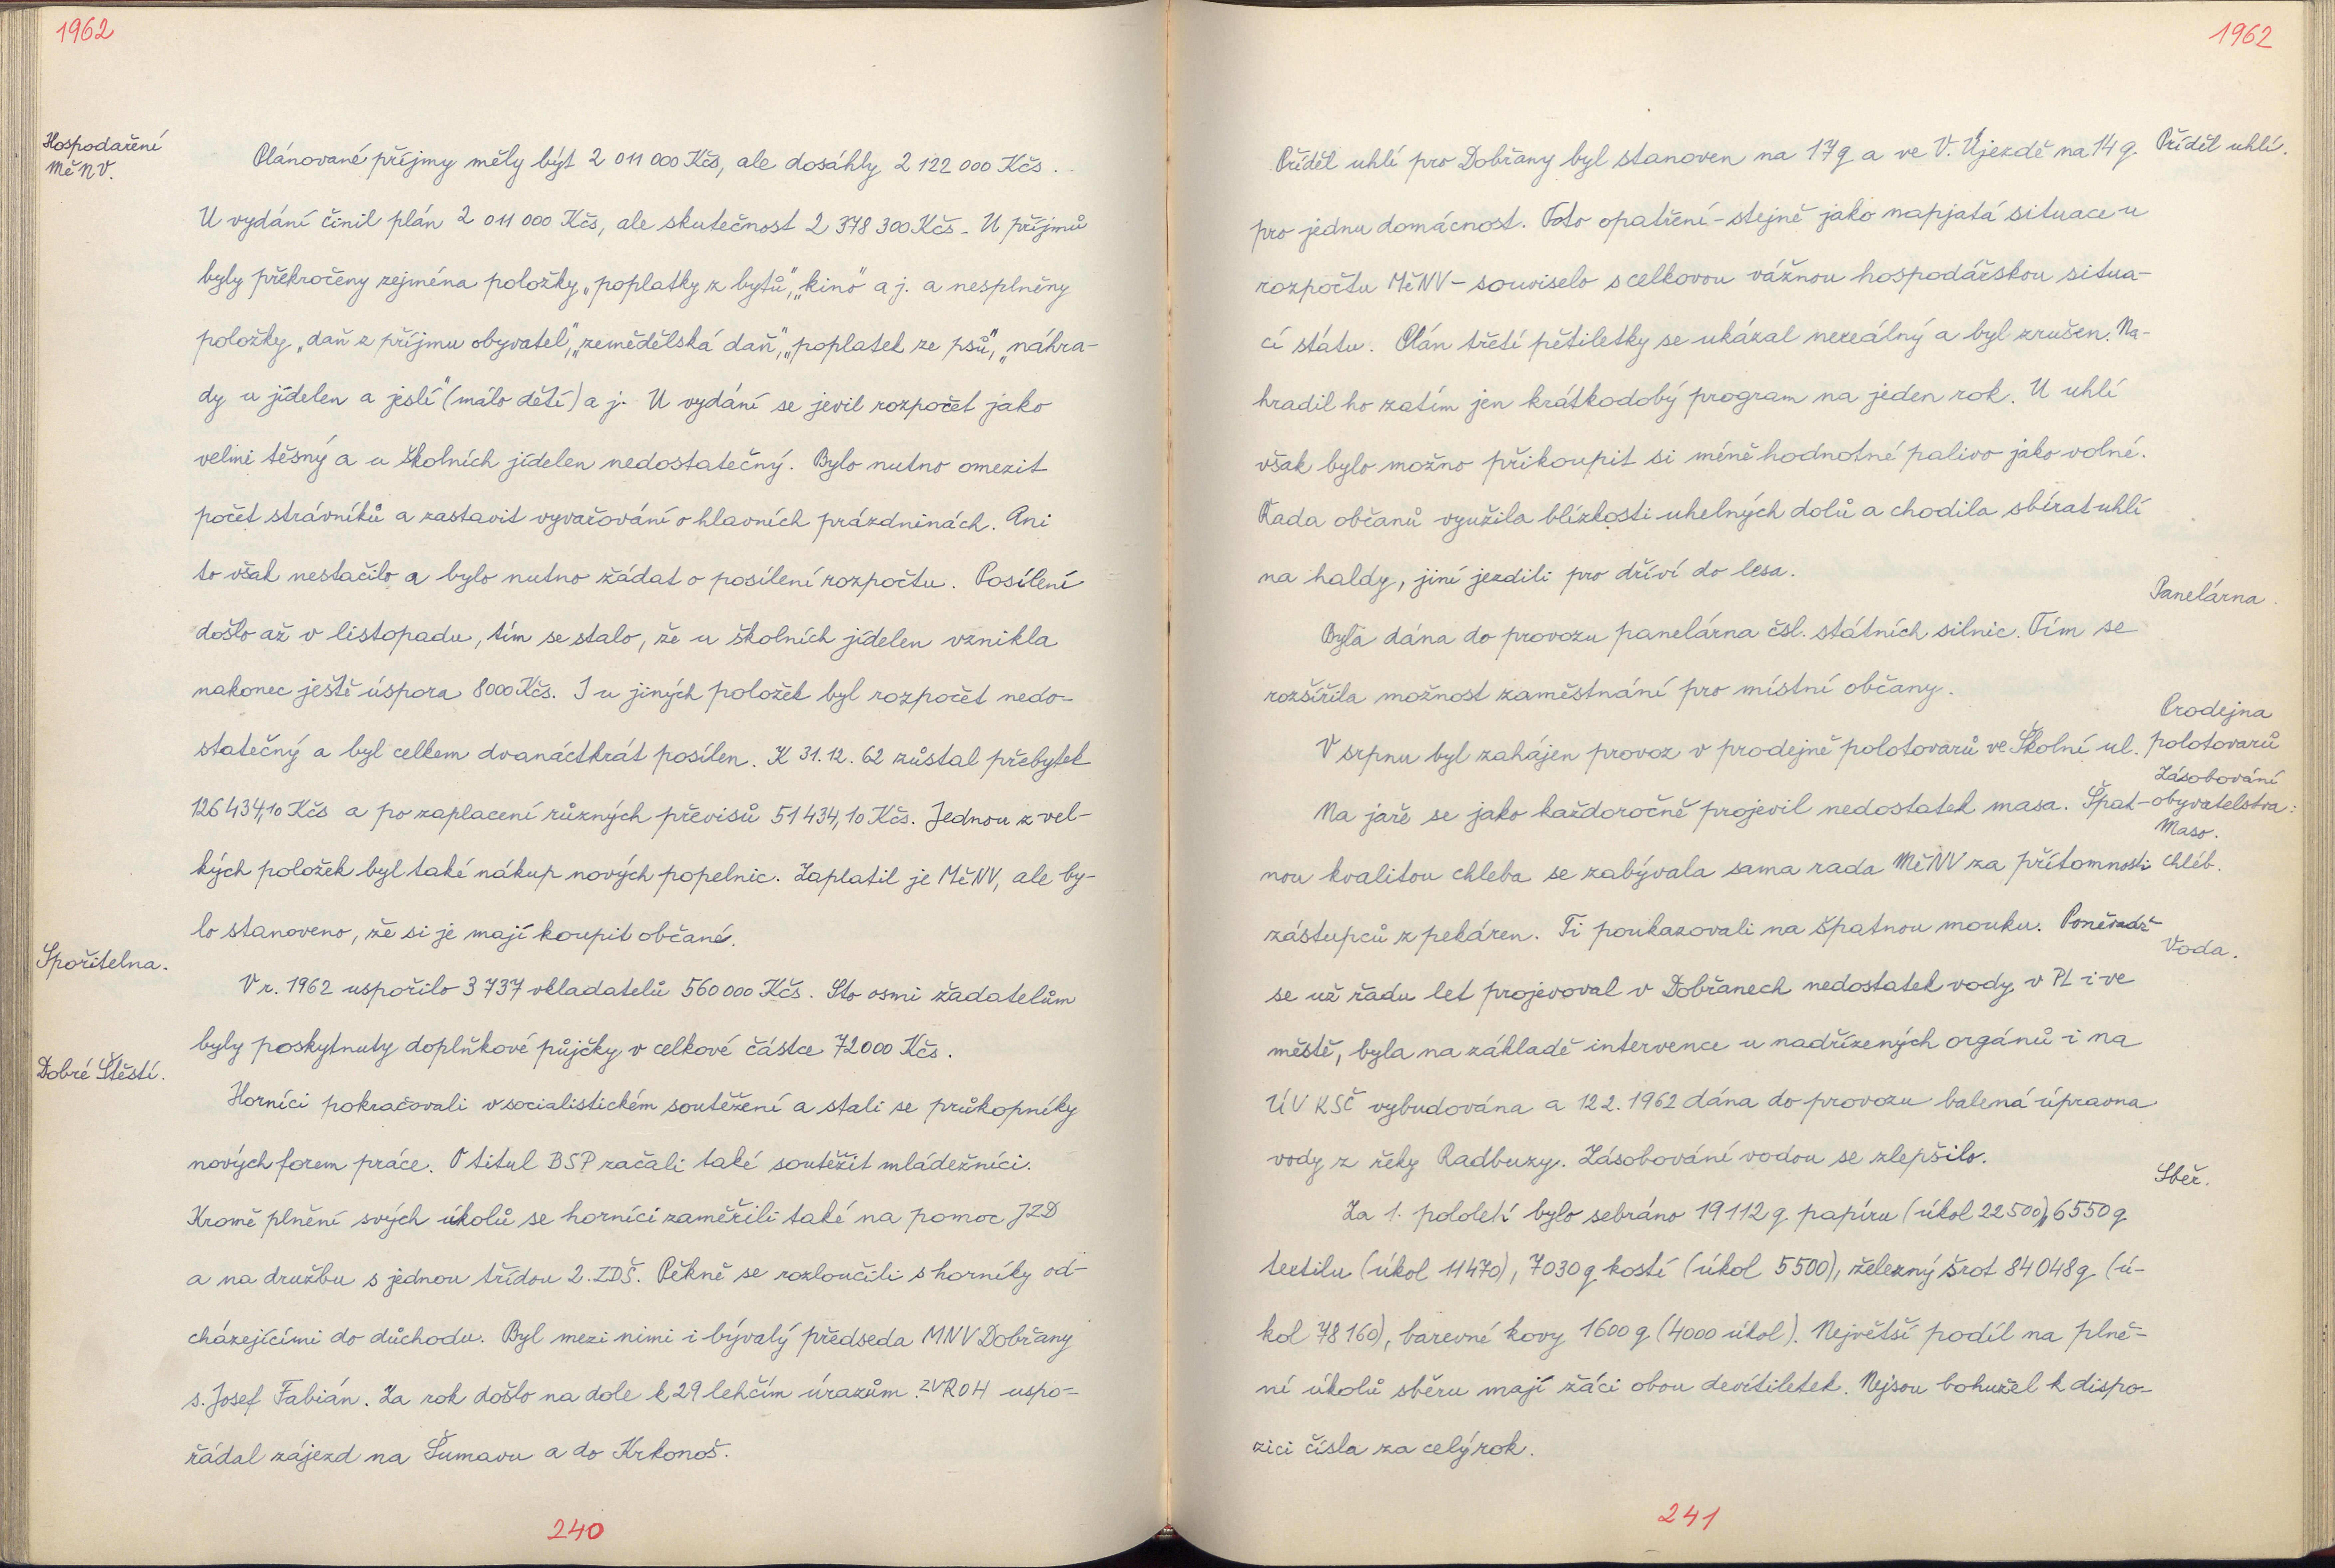 1962
Hospodaření
MěNV.
Plánované příjmy měly být 2 011 000 Kčs, ale dosáhly 2 122 000 Kčs.
U vydání činil plán 2 011 000 Kčs, ale skutečnost 2 378 300 Kčs. U příjmů
byly překročeny zejména položky „poplatky z bytů", „kino" a j. a nesplněny
položky „daň z příjmu obyvatel", „zemědělská daň", „poplatek ze psů", „náhra-
dy u jídelen a jeslí" (málo dětí) a j. U vydání se jevil rozpočet jako
velmi těsný a u školních jídelen nedostatečný. Bylo nutno omezit
počet strávníků a zastavit vyvařování o hlavních prázdninách. Ani
to však nestačilo a bylo nutno žádat o posílení rozpočtu. Posílení
došlo až v listopadu, tím se stalo, že u školních jídelen vznikla
nakonec ještě úspora 8000 Kčs. I u jiných položek byl rozpočet nedo-
statečný a byl celkem dvanáctkrát posílen. K 31.12. 62 zůstal přebytek
126 434,10 Kčs a po zaplacení různých převisů 51 434,10 Kčs. Jednou z vel-
kých položek byl také nákup nových popelnic. Zaplatil je MěNV, ale by-
lo stanoveno, že si je mají koupit občané.
Spořitelna.
V r. 1962 uspořilo 3 737 vkladatelů 560 000 Kčs. Sto osmi žadatelům
byly poskytnuty doplňkové půjčky v celkové částce 72 000 Kčs.
Dobré Štěstí.
Horníci pokračovali v socialistickém soutěžení a stali se průkopníky
nových forem práce. O titul BSP začali také soutěžit mládežníci.
Kromě plnění svých úkolů se horníci zaměřili také na pomoc JZD
a na družbu s jednou třídou 2. ZDŠ. Pěkně se rozloučili s horníky od-
cházejícími do důchodu. Byl mezi nimi i bývalý předseda MNV Dobřany
s. Josef Fabián. Za rok došlo na dole k 29 lehčím úrazům. ZV ROH uspo-
řádal zájezd na Šumavu a do Krkonoš.
240
1962
Příděl uhlí pro Dobřany byl stanoven na 17 q a ve V. Újezdě na 14 q.
Příděl uhlí.
pro jednu domácnost. Toto opatření - stejně jako napjatá situace u
rozpočtu MěNV - souviselo s celkovou vážnou hospodářskou situa-
cí státu. Plán třetí pětiletky se ukázal nereálný a byl zrušen. Na-
hradil ho zatím jen krátkodobý program na jeden rok. U uhlí
však bylo možno přikoupit si méně hodnotné palivo jako volné.
Řada občanů využila blízkosti uhelných dolů a chodila sbírat uhlí
na haldy, jiní jezdili pro dříví do lesa.
Panelárna.
Byla dána do provozu panelárna čsl. státních silnic. Tím se
rozšířila možnost zaměstnání pro místní občany.
Prodejna
polotovarů
V srpnu byl zahájen provoz v prodejně polotovarů ve Školní ul.
Zásobování
obyvatelstva:
Maso.
Na jaře se jako každoročně projevil nedostatek masa. Špat-
nou kvalitou chleba se zabývala sama rada MěNV za přítomnosti
Chléb.
zástupců z pekáren. Ti poukazovali na špatnou mouku. Poněvadž
Voda.
se už řadu let projevoval v Dobřanech nedostatek vody v PL i ve
městě, byla na základě intervence u nadřízených orgánů i na
ÚV KSČ vybudována a 12 2. 1962 dána do provozu balená úpravna
vody z řeky Radbuzy. Zásobování vodou se zlepšilo.
Sběr.
Za 1. pololetí bylo sebráno 19 112 q papíru (úkol 22 500), 6550 q
textilu (úkol 11470), 7030 q kostí (úkol 5500), železný šrot 84 048 q (ú-
kol 78 160), barevné kovy 1600 q (4000 úkol). Největší podíl na plně-
ní úkolů sběru mají žáci obou devítiletek. Nejsou bohužel k dispo-
zici čísla za celý rok.
241